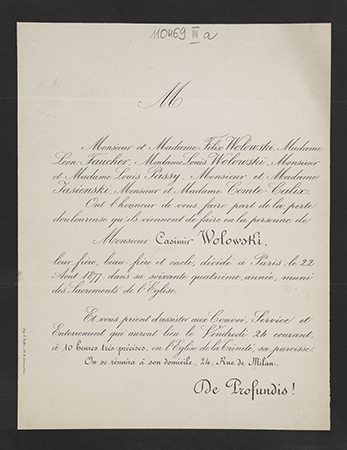 110469 III a
M
Monsieur et Madame Félix Wolowski, Madame
Léon Faucher, Madame Louis Wolowski, Monsieur
et Madame Louis Passy, Monsieur et Madame
Jasienski, Monsieur et Madame Comte-Calix,
Ont l'honneur de vous faire part de la perte
douloureuse qu'ils viennent de faire en la personne de
Monsieur Casimir Wolowski,
leur frère, beau-frère et oncle, décédé à Paris, le 22
Août 1877, dans sa soixante quatrième année, muni
des Sacrements de l'Eglise.
Et vous prient d'assister aux Convoi, Service et
Enterrement qui auront lieu le Vendredi 24 courant,
à 10 heures très-précises, en l'Eglise de la Trinité, sa paroisse.
On se réunira à son domicile, 24, Rue de Milan.
De Profundis!